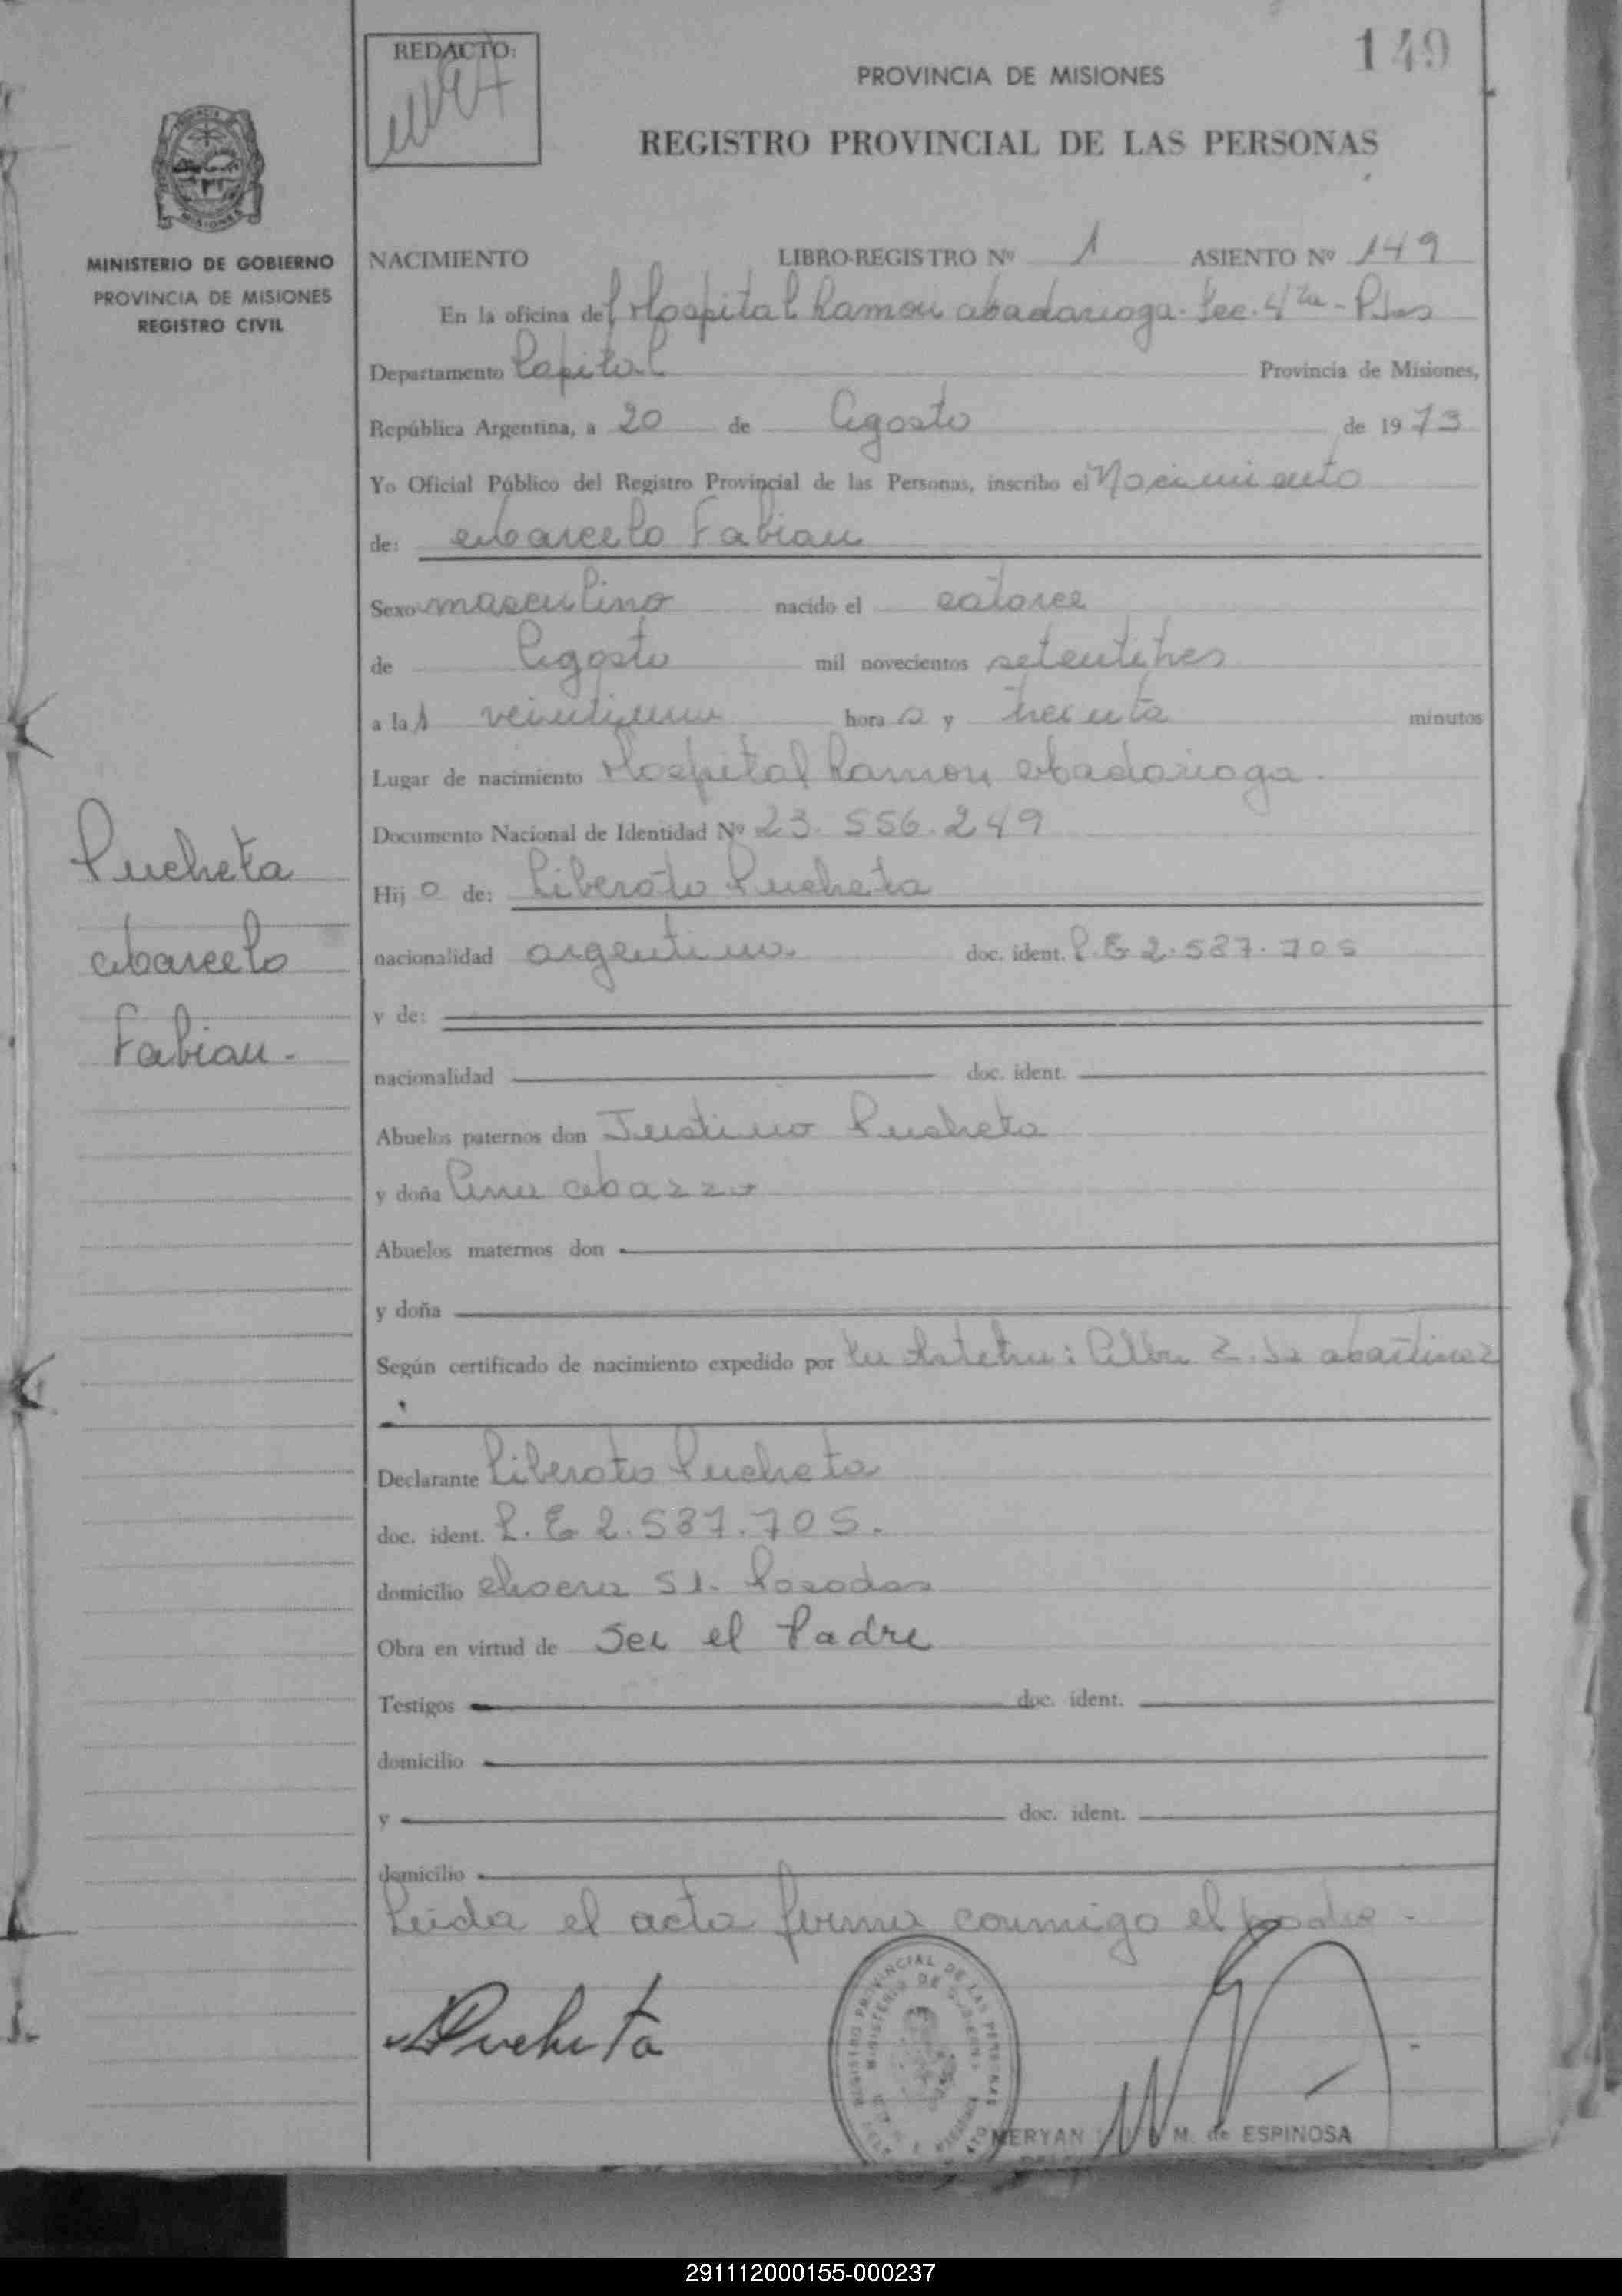 149
REDACTO:
PROVINCIA DE MISIONES
REGISTRO PROVINCIAL DE LAS PERSONAS
MINISTERIO DE GOBIERNO
PROVINCIA DE MISIONES
REGISTRO CIVIL
NACIMIENTO LIBRO-REGISTRO Nº 1 ASIENTO Nº 149
En la oficina del Hospital Ramon Madariaga. Sec. 4ta - Pdas
Departamento Capital Provincia de Misiones,
República Argentina, a 20 de Agosto de 1973
Yo Oficial Público del Registro Provincial de las Personas, inscribo el Nacimiento
de: Marcelo Fabian
Sexo masculino nacido el catorce
de Agosto mil novecientos setentitres
a las veintiuna horas y treinta minutos
Lugar de nacimiento Hospital Ramon Madariaga.
Documento Nacional de Identidad Nº 23.556.249
Hijo de: Liberato Pucheta
nacionalidad argentino. doc. ident. L.E 2.587.705
y de:
nacionalidad doc. ident.
Abuelos paternos don Justino Pucheta
y doña Ana
Abuelos maternos don
y doña
Según certificado de nacimiento expedido por La Obstetra: Alba Z. de Martinez
Declarante Liberato Pucheta
doc. ident. L.E 2.587.705.
domicilio Chacra 51. Posadas
Obra en virtud de Ser el Padre
Testigos doc. ident.
domicilio
y doc. ident.
domicilio
Leida el acta firma conmigo el padre.
Pucheta
Marcelo
Fabian.
Pucheta
REGISTRO PROVINCIAL DE LAS PERSONAS
MINISTERIO DE GOBIERNO
MERYAN M. de ESPINOSA
291112000155-000237